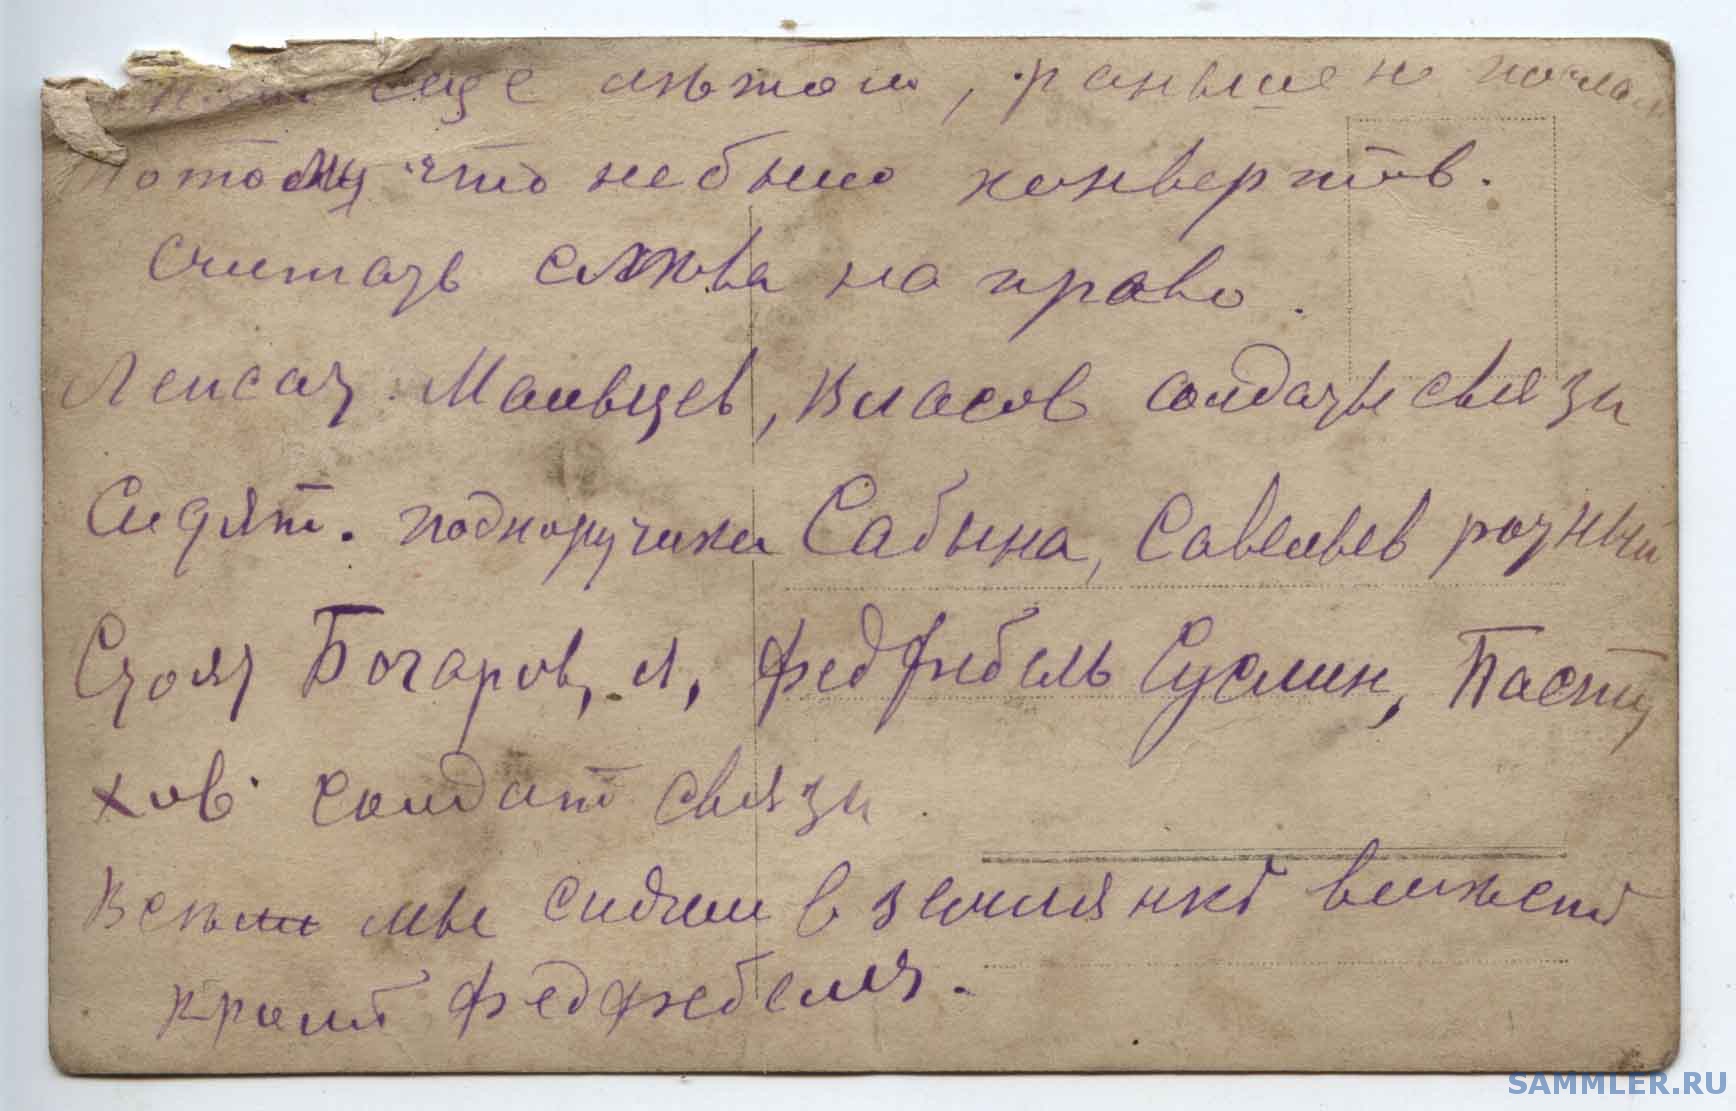 еще лѣтом, раньше н послал
потому что небыло конвертов.
Считать слѣва на право.
Лежат Мальцев, Власов солдаты связи
Сидят. подпоручики Сабына, Савельев ротный
Стоят Бочаров, я, федфебель Суслин, Пасту
хов солдат связи
мы сидим в землянкѣ вмѣстѣ
кромѣ федфебеля.
SAMMLER.RU